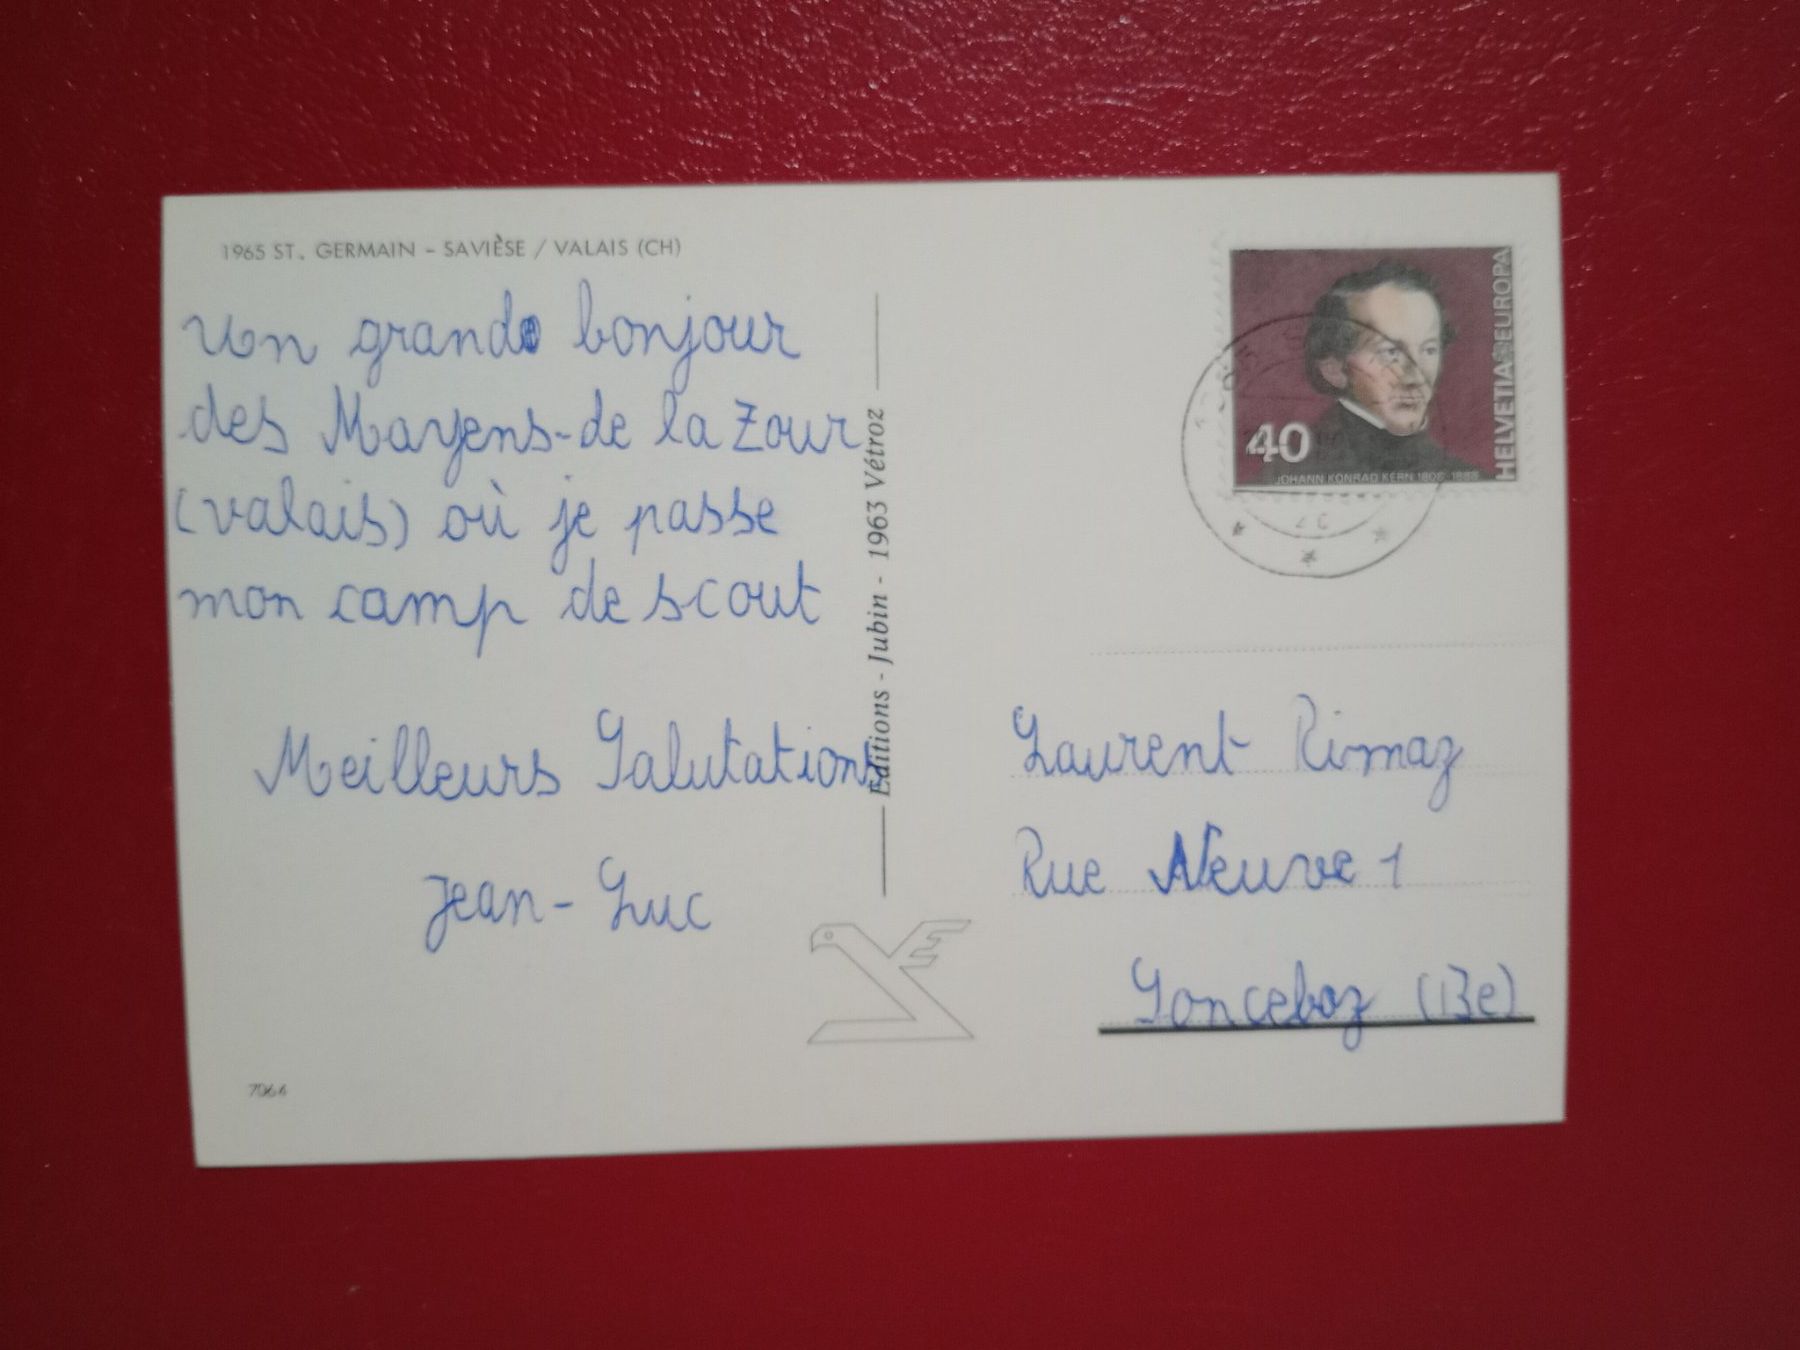 1965 ST. GERMAIN - SAVIÈSE / VALAIS (CH)
Un grand bonjour
des Mayens-de la Zour
(valais) où je passe
mon camp de scout
Meilleurs Salutations
Jean-Luc
7064
Editions - Jubin - 1963 Vétroz
40
JOHANN KONRAD KERN 1808-1888
HELVETIA EUROPA
Laurent Rimaz
Rue Neuve 1
Sonceboz (Be)